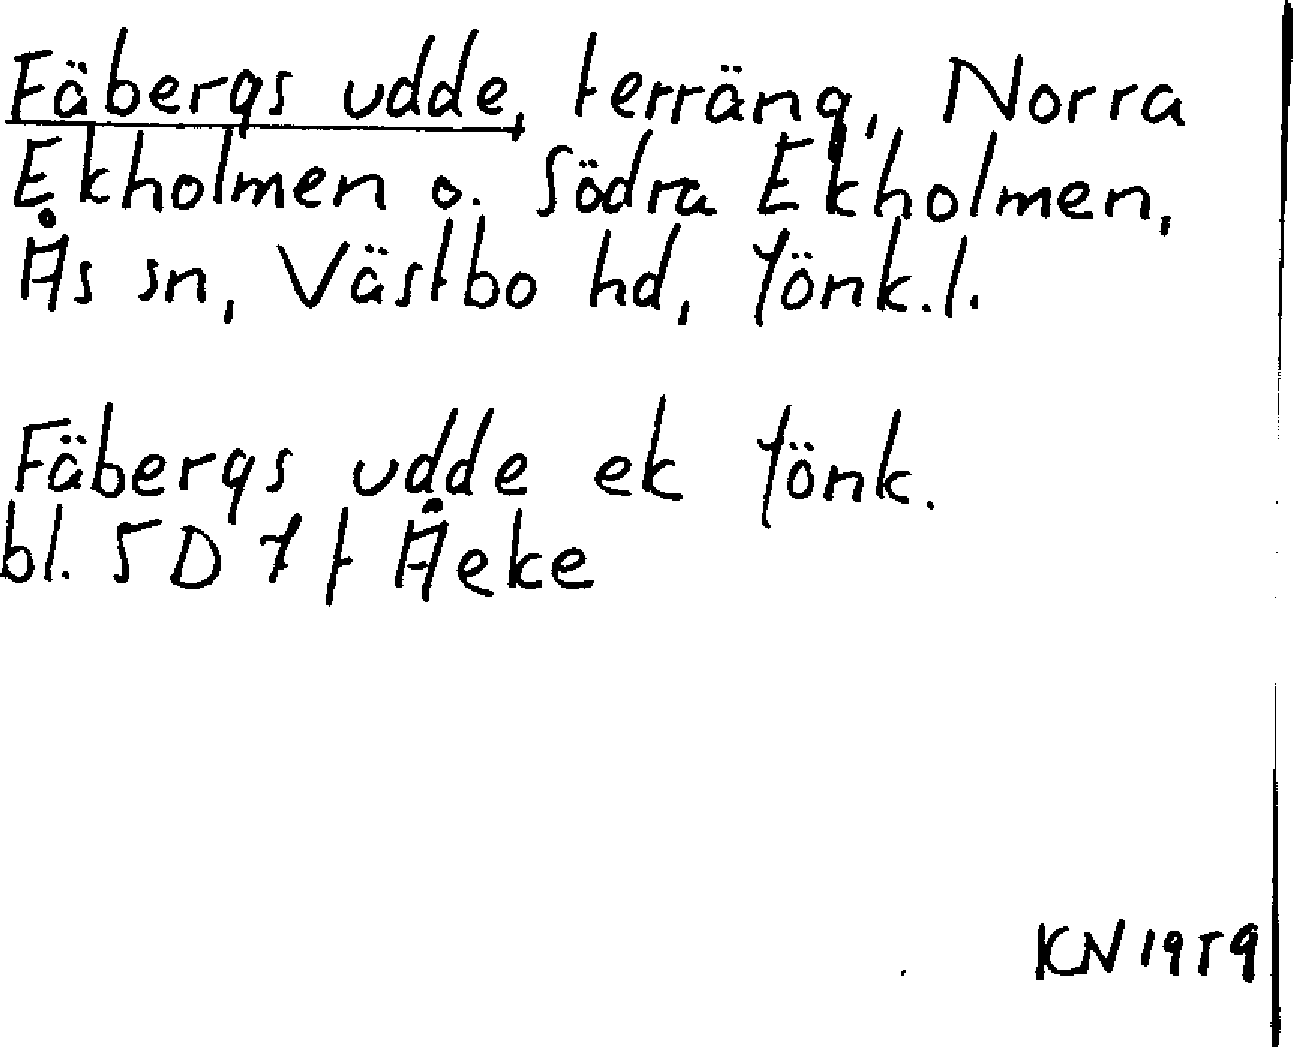 Fäbergs udde, terräng, Norra
Ekholmen o. Södra Ekholmen,
Ås sn, Västbo hd, Jönk.l.
Fäbergs udde ek Jönk.
bl. 5D 7f Åeke
KN 1959